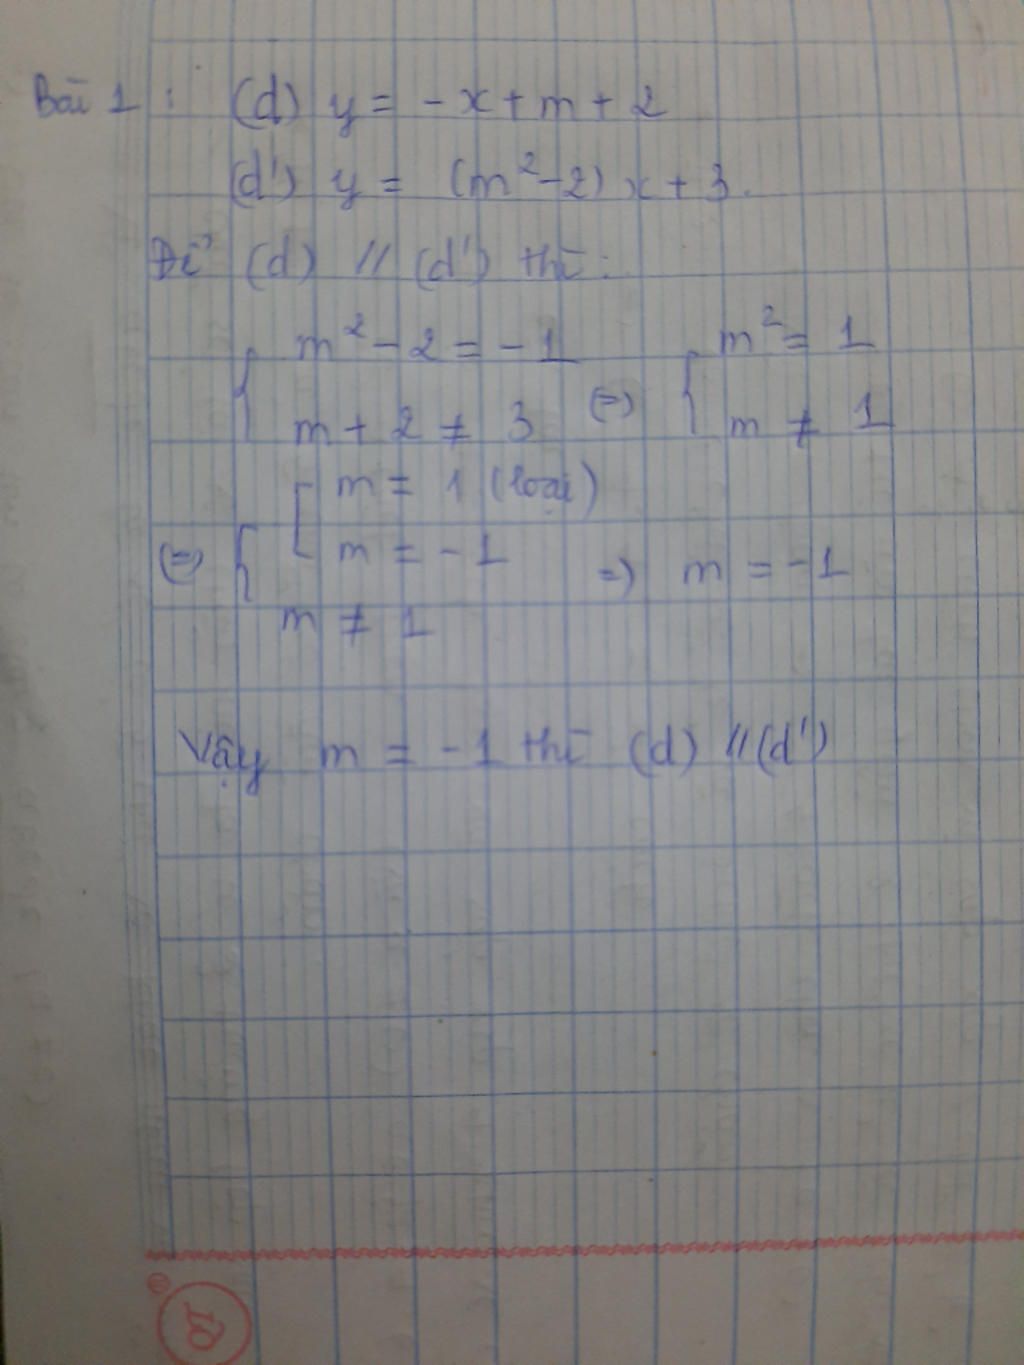 Bài 1 : (d) y = - x + m + 2
(d') y = (m² - 2) x + 3.
Để (d) // (d') thì :
{ m² - 2 = - 1 (=) { m² = 1
m + 2 ≠ 3 m ≠ 1
(=) { [ m = 1 (loại)
m = - 1 =) m = - 1
m ≠ 1
Vậy m = - 1 thì (d) // (d')